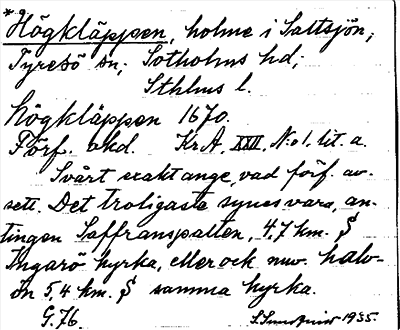 * Högkläppen, holme i Saltsjön,
Tyresö sn; Sotholms hd;
Sthlms l.
Högkläppen 1670.
Förf. okd. Kr.A, XXII, N:o 1. lit. a.
Svårt exakt ange, vad förf. av-
sett. Det troligaste synes vara, an-
tingen Saffranspallen, 4,7 km. S
Ingarö kyrka, eller ock nuv. halv-
ön 5,4 km. S samma kyrka.
G. 76. 1935.